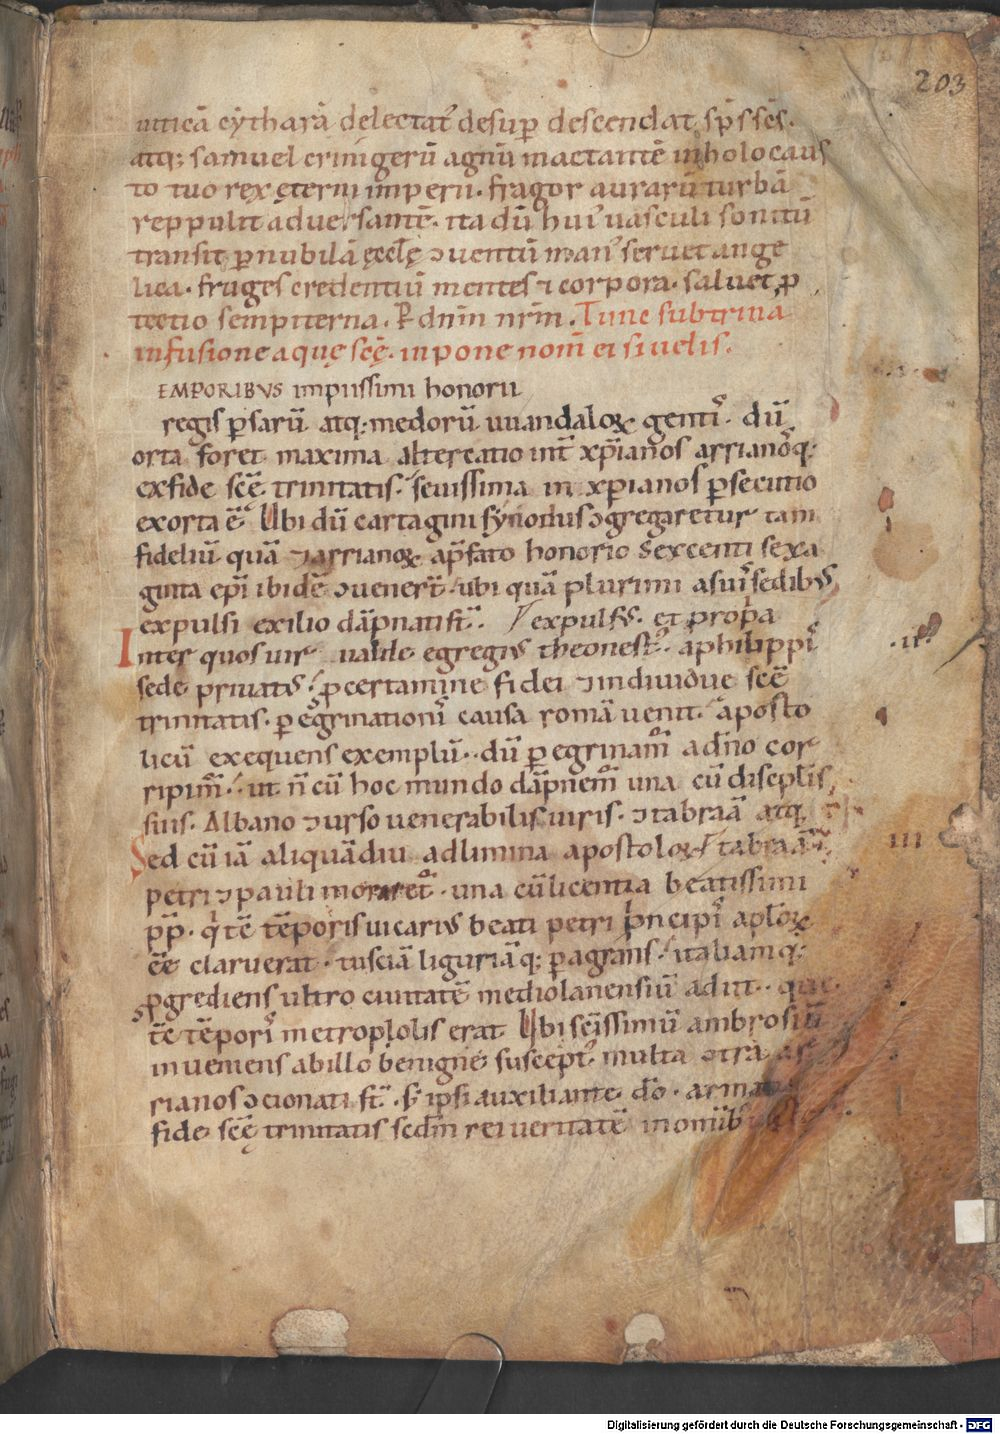 203
uiticā cytharā delectat᷒ desup descendat sp̄s sc̄s.
atq; samuel crinigerū agnū mactantē inholocaus
to tuo rex ęterni imperii. fragor aurarū turbā
reppulit aduersantē. ita dū hui᷒ uasculi sonitū
transit p nubilā ęccłę ɔuentū man᷒ seruet ange
lica. fruges credentiū mentes ⁊ corpora. saluet, p
tectio sempiterna. P dn̄m nr̄m. Tunc sub trina
infusione aquę scę̄. inpone nom̄ ei si uelis.
EMPORIBVS impiissimi honorii
regis psarū atq; medorū uuandaloꝝ gentis. dū
orta foret maxima altercatio int̄ xp̄ianos arrianosq;
ex fide scē̄ trinitatis. seuissima in xp̄ianos psecutio
exorta ē. Ubi dū cartagini synodus ɔgregaretur tam
fideliū quā ⁊ arrianoꝝ a p̄fato honorio sexcenti sexa
ginta ep̄i ibidē ɔuener̄t. ubi quā plurimi a suis sedib᷒
expulsi exilio dāpnati st̄. / expuls᷒. et propia
Inter quos uir ualde egregi᷒ theonest᷒. a philippis
sede priuat᷒. p certamine fidei ⁊ indiuiduę scē̄
trinitatis. peegrinationis causa romā uenit. aposto
licū exequens exemplū. dū peegrinam᷒ a dn̄o cor
ripim᷒. ut n̄ cū hoc mundo dāpnem᷒ una cū discipłis
suis. Albano ⁊ urso uenerabilis uiris. ⁊ tabraā atq,
Sed cū iā aliquādiu ad limina apostoloꝝ / tabraā
petri ⁊ pauli moraret᷒. una cū licentia beatissimi
pp. qi tē tēporis uicari᷒ beati petri pncipis apłoꝝ
ēē claruerat. tusciā liguriāq; pagrans. italiamq;
pgrediens ultro ciuitatē mediolanensiū adiit. que
tē tēporis metropłolis erat Ubi scīssimū ambrosiū
inueniens ab illo benigne suscept᷒ multa ɔtra ar
rianos ɔcionati st̄. s; ipsi auxiliante dō. ar
fide scę̄ trinitatis sed̄m rei ueritatē in omīb
.ii.
iii
Digitalisierung gefördert durch die Deutsche Forschungsgemeinschaft - DFG